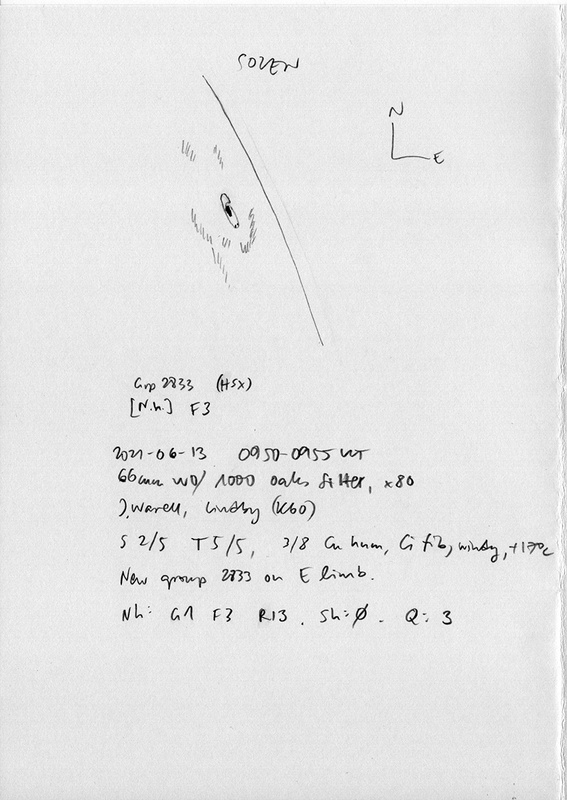 SOLEN
N
E
Grp 2833 (HSX)
[N.h.] F3
2021-06-13 0950-0955 UT
66mm WO/ 1000 oaks filter, x80
J. Warell, Lindby (K60)
S 2/5 T 5/5, 3/8 Cu hum, Ci fib, windy, +17°C
New group 2833 on E limb.
Nh: G1 F3 R13. Sh: Ø. Q: 3